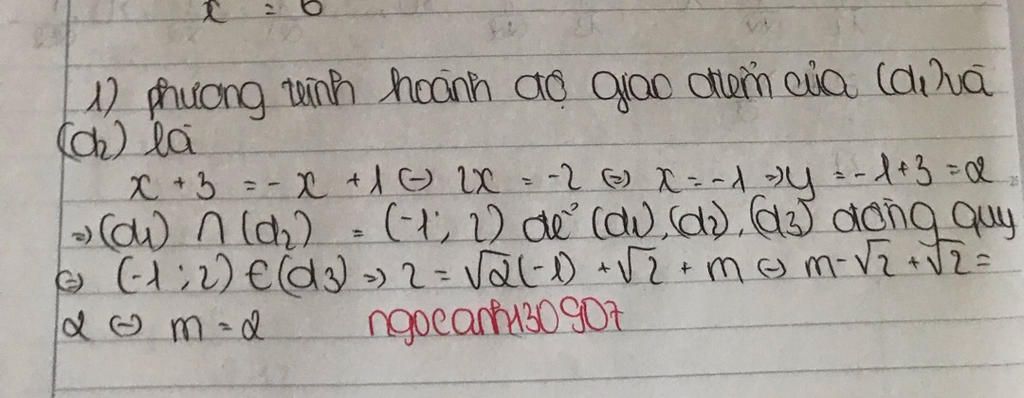 x = 6
1) phương trình hoành độ giao điểm của (d1) và
(d2) là
x + 3 = -x + 1 ⇔ 2x = -2 ⇔ x = -1 ⇒ y = -1 + 3 = 2
⇒ (d1) ∩ (d2) = (-1; 2) để (d1), (d2), (d3) đồng quy
⇔ (-1; 2) ∈ (d3) ⇒ 2 = √2(-1) + √2 + m ⇔ m - √2 + √2 =
2 ⇔ m = 2 ngocanh130907